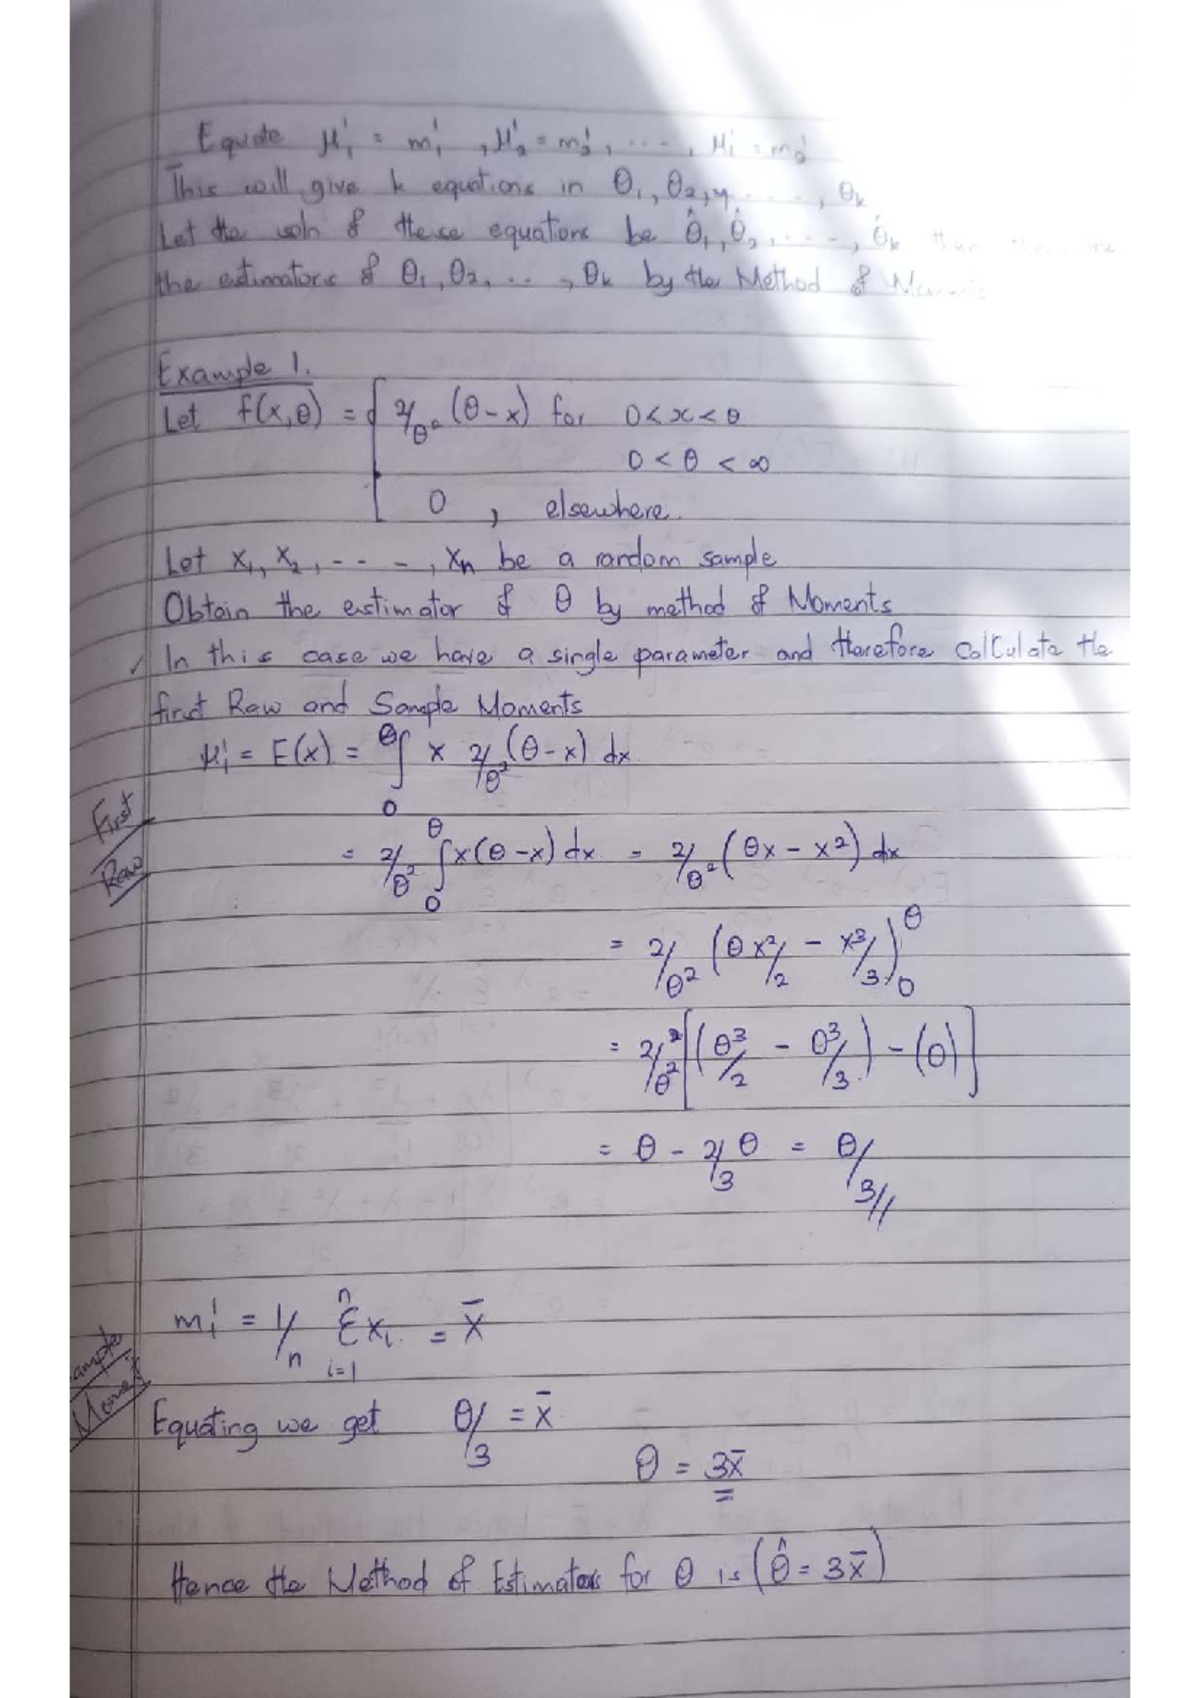 Equate μ'₁ = m'₁ , μ'₂ = m'₂ , - - - , μ'ᵢ = m'₂
This will give k equations in θ₁, θ₂, . . . . , θk
Let the soln of these equations be θ̂₁, θ̂₂, - - - - , θ̂k then
the estimators of θ₁, θ₂, . . . , θk by the Method of
Example 1.
Let f(x,θ) = { 2/θ² (θ-x) for 0<x<θ
0<θ<∞
0 , elsewhere.
Let x₁, x₂, - - - - , xn be a random sample
Obtain the estimator of θ by method of Moments
In this case we have a single parameter and therefore calculate the
first Raw and Sample Moments
μ'₁ = E(x) = ∫₀^θ x 2/θ² (θ-x) dx
First
Raw
= 2/θ² ∫₀^θ x(θ-x) dx = 2/θ² (θx - x²) dx
= 2/θ² (θx²/2 - x³/3)₀^θ
= 2/θ² [(θ³/2 - θ³/3) - (0)]
= θ - 2/3 θ = θ/3//
m'₁ = 1/n Σ xᵢ = x̄
n
i=1
Moment
Equating we get θ/3 = x̄
θ = 3x̄
Hence the Method of Estimators for θ is (θ̂ = 3x̄)